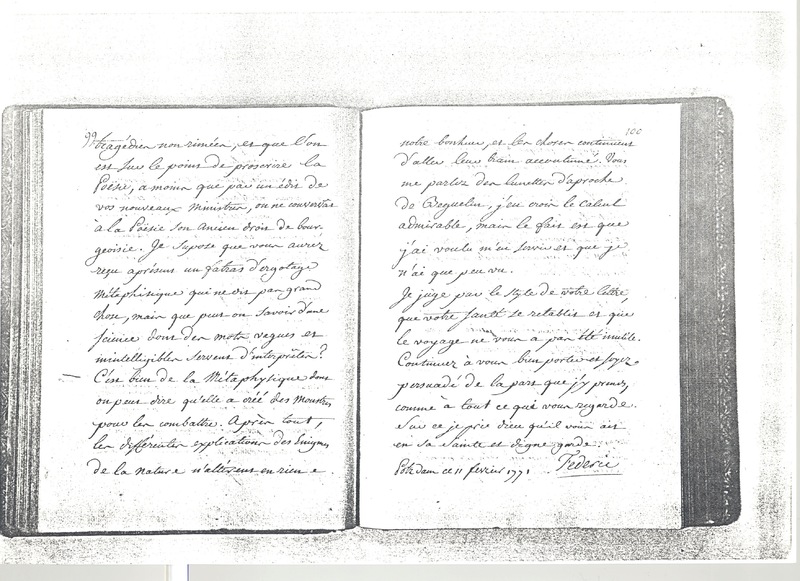 99
tragédies non rimées, et que l'on
est sur le point de proscrire la
Poësie, a moins que par un édit de
vos nouveaux Ministres, on ne conserve
à la Poësie son ancien droit de bour-
geoisie. Je supose que vous aurez
reçu aprésent un fatras d'ergotage
Métaphisique qui ne dit pas grand
chose, mais que peut on savoir d'une
science dont des mots vagues et
inintelligibles servent d'interprêtes?
C'est bien de la Métaphysique dont
on peut dire qu'elle a créé des Monstres
pour les combattre. Après tout,
les différentes explications des Enigmes
de la nature n'altèrent en rien
100
notre bonheur, et les choses continuent
d'aller leur train accoutumé. Vous
me parlez des lunettes d'aproche
de Beguelin, j'en crois le calcul
admirable, mais le fait est que
j'ai voulu m'en servir et que je
n'ai que peu vu.
Je juge par le style de votre lettre,
que votre santé se retablit et que
le voyage ne vous a pas été inutile.
Continuez à vous bien porter et soyez
persuadé de la part que j'y prends,
comme à tout ce qui vous regarde.
Sur ce je prie dieu qu'il vous ait
en sa sainte et digne garde.
Potzdam ce 11 fevrier 1771 Federic